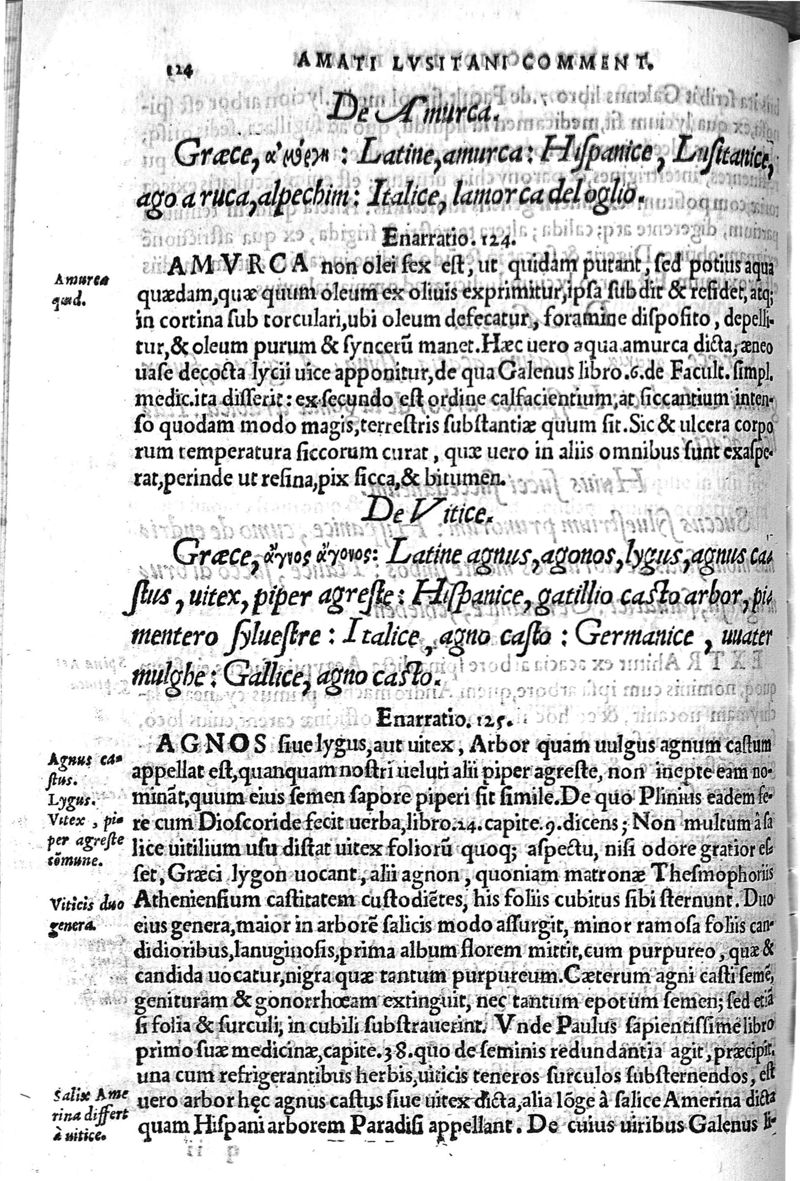 124
AMATI LVSITANI COMMENT.
De Amurca.
Græce, ἀμόργη : Latine, amurca: Hispanice, Lusitanice,
ago a ruca, alpechim: Italice, lamorca del oglio.
Enarratio. 124.
Amurca
quid.
AMVRCA non olei fex est, ut quidam putant, sed potius aqua
quædam, quæ quum oleum ex oliuis exprimitur, ipsa subdit & residet, atq;
in cortina sub torculari, ubi oleum defecatur, foramine disposito, depelli-
tur, & oleum purum & syncerũ manet. Hæc uero aqua amurca dicta, æneo
uase decocta lycii uice apponitur, de qua Galenus libro .6. de Facult. simpl.
medic. ita disserit: ex secundo est ordine calfacientium, at siccantium inten-
so quodam modo magis, terrestris substantiæ quum sit. Sic & ulcera corpo
rum temperatura siccorum curat, quæ uero in aliis omnibus sunt exaspe-
rat, perinde ut resina, pix sicca, & bitumen.
De Vitice.
Græce, ἄγνος ἄγονος: Latine agnus, agonos, lygus, agnus ca-
stus, uitex, piper agreste: Hispanice, gatillio casto arbor, pi-
mentero syluestre : Italice, agno casto : Germanice, uuater
mulghe: Gallice, agno casto.
Enarratio. 125.
Agnus ca-
stus.
Lygus.
Vitex, pi-
per agreste
cõmune.
Viticis duo
genera.
AGNOS siue lygus, aut uitex, Arbor quam uulgus agnum castum
appellat est, quanquam nostri ueluti alii piper agreste, non inepte eam no-
minãt, quum eius semen sapore piperi sit simile. De quo Plinius eadem fe-
re cum Dioscoride fecit uerba, libro .24. capite .9. dicens; Non multum à sa
lice uitilium usu distat uitex foliorũ quoq; aspectu, nisi odore gratior es-
set, Græci lygon uocant, alii agnon, quoniam matronæ Thesmophoriis
Atheniensium castitatem custodiẽtes, his foliis cubitus sibi sternunt. Duo
eius genera, maior in arborẽ salicis modo assurgit, minor ramosa foliis can-
didioribus, lanuginosis, prima album florem mittit, cum purpureo, quæ &
candida uocatur, nigra quæ tantum purpureum. Cæterum agni casti semẽ,
genituram & gonorrhœam extinguit, nec tantum epotum semen; sed etiã
si folia & surculi, in cubili substrauerint. Vnde Paulus sapientissime libro
primo suæ medicinæ, capite .38. quo de seminis redundantia agit, præcipit.
una cum refrigerantibus herbis, uiticis teneros surculos substernendos, est
uero arbor hęc agnus castus siue uitex dicta, alia lõge â salice Amerina dicta
quam Hispani arborem Paradisi appellant. De cuius uiribus Galenus li-
Salix Ame
rina differt
à uitice.